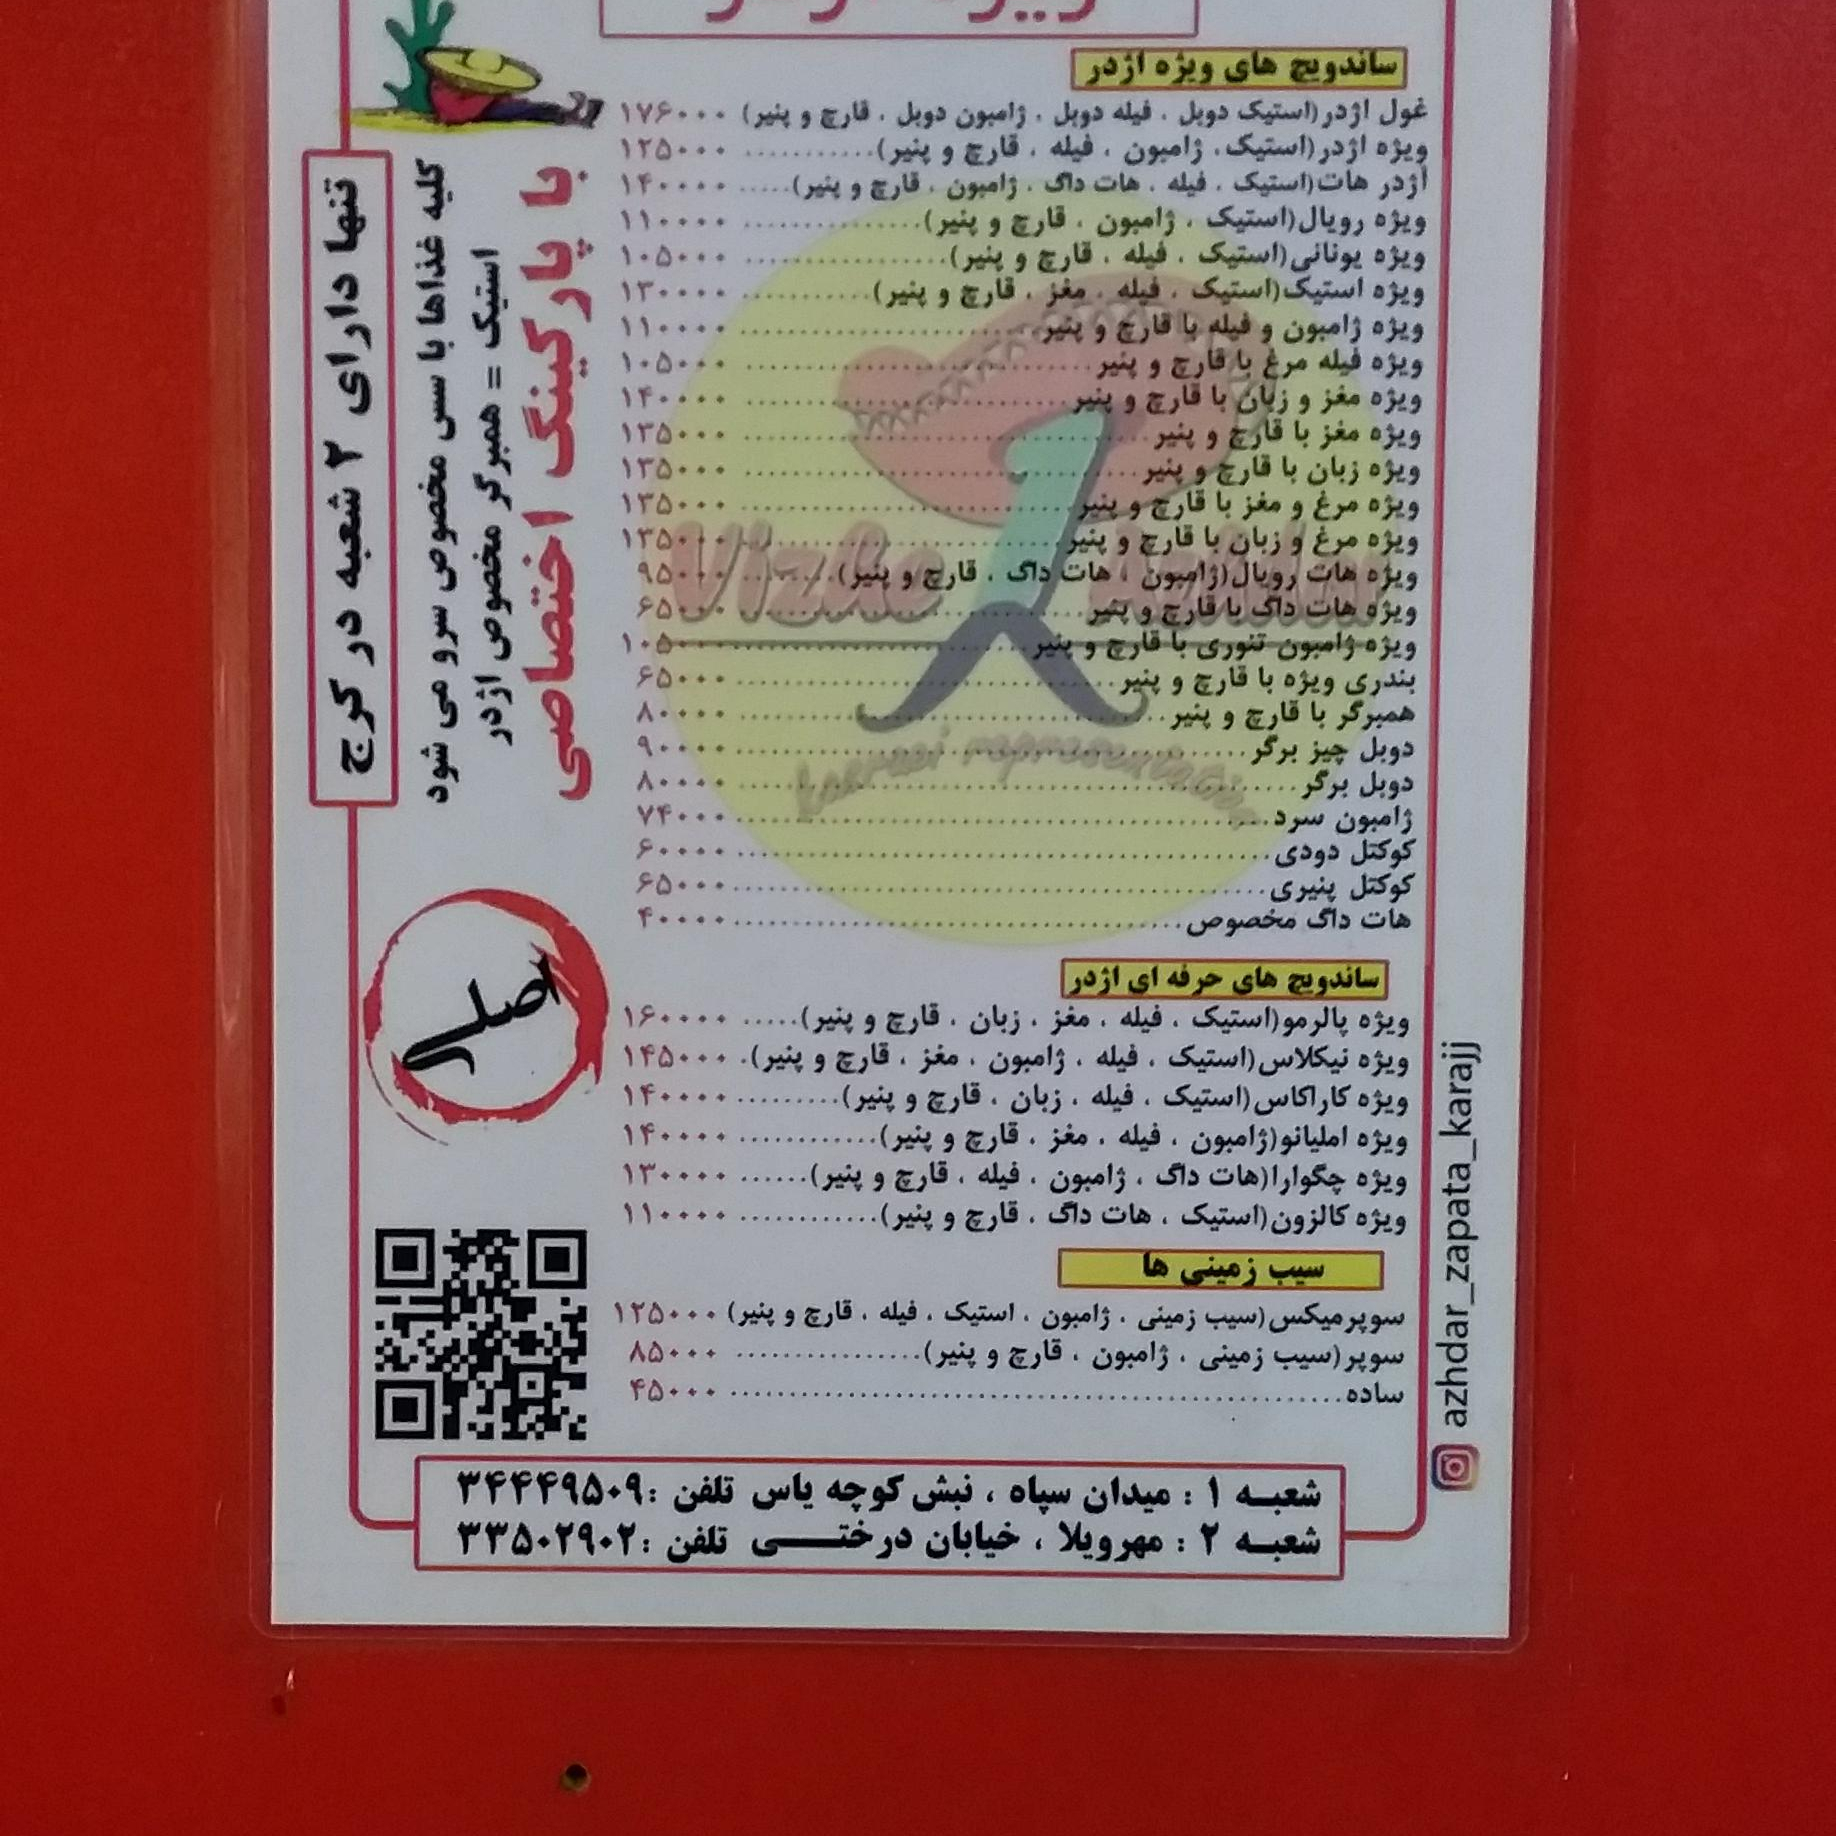 ساندویچ های ویژه اژدر
غول اژدر(استیک دوبل ، فیله دوبل ، ژامبون دوبل ، قارچ و پنیر) ۱۷۶۰۰۰
ویژه اژدر(استیک، ژامبون ، فیله ، قارچ و پنیر)............ ۱۲۵۰۰۰
اژدر هات(استیک ، فیله ، هات داگ ، ژامبون ، قارچ و پنیر)..... ۱۴۰۰۰۰
ویژه رویال(استیک ، ژامبون ، قارچ و پنیر)................ ۱۱۰۰۰۰
ویژه یونانی(استیک ، فیله ، قارچ و پنیر)................. ۱۰۵۰۰۰
ویژه استیک(استیک ، فیله ، مغز ، قارچ و پنیر)............ ۱۳۰۰۰۰
ویژه ژامبون و فیله با قارچ و پنیر........................... ۱۱۰۰۰۰
ویژه فیله مرغ با قارچ و پنیر.............................. ۱۰۵۰۰۰
ویژه مغز و زبان با قارچ و پنیر............................. ۱۴۰۰۰۰
ویژه مغز با قارچ و پنیر.................................. ۱۳۵۰۰۰
ویژه زبان با قارچ و پنیر................................. ۱۳۵۰۰۰
ویژه مرغ و مغز با قارچ و پنیر............................ ۱۳۵۰۰۰
ویژه مرغ و زبان با قارچ و پنیر............................ ۱۳۵۰۰۰
ویژه هات رویال(ژامبون ، هات داگ ، قارچ و پنیر)......... ۹۵۰۰۰
ویژه هات داگ با قارچ و پنیر.............................. ۶۵۰۰۰
ویژه ژامبون تنوری با قارچ و پنیر.......................... ۱۰۵۰۰۰
بندری ویژه با قارچ و پنیر................................ ۶۵۰۰۰
همبرگر با قارچ و پنیر.................................... ۸۰۰۰۰
دوبل چیز برگر........................................... ۹۰۰۰۰
دوبل برگر............................................... ۸۰۰۰۰
ژامبون سرد.............................................. ۷۴۰۰۰
کوکتل دودی............................................. ۶۰۰۰۰
کوکتل پنیری............................................. ۶۵۰۰۰
هات داگ مخصوص...................................... ۴۰۰۰۰
ساندویچ های حرفه ای اژدر
ویژه پالرمو(استیک ، فیله ، مغز ، زبان ، قارچ و پنیر)..... ۱۶۰۰۰۰
ویژه نیکلاس(استیک ، فیله ، ژامبون ، مغز ، قارچ و پنیر). ۱۴۵۰۰۰
ویژه کاراکاس(استیک ، فیله ، زبان ، قارچ و پنیر)......... ۱۴۰۰۰۰
ویژه املیانو(ژامبون ، فیله ، مغز ، قارچ و پنیر)............ ۱۴۰۰۰۰
ویژه چگوارا(هات داگ ، ژامبون ، فیله ، قارچ و پنیر)...... ۱۳۰۰۰۰
ویژه کالزون(استیک ، هات داگ ، قارچ و پنیر)............ ۱۱۰۰۰۰
سیب زمینی ها
سوپرمیکس(سیب زمینی ، ژامبون ، استیک ، فیله ، قارچ و پنیر) ۱۲۵۰۰۰
سوپر(سیب زمینی ، ژامبون ، قارچ و پنیر)................ ۸۵۰۰۰
ساده.................................................... ۴۵۰۰۰
شعبه ۱ : میدان سپاه ، نبش کوچه یاس تلفن :۳۴۴۴۹۵۰۹
شعبه ۲ : مهرویلا ، خیابان درختی تلفن :۳۳۵۰۲۹۰۲
تنها دارای ۲ شعبه در کرج
کلیه غذاها با سس مخصوص سرو می شود
استیک = همبرگر مخصوص اژدر
با پارکینگ اختصاصی
اصلی
azhdar_zapata_karajj
Vizhe